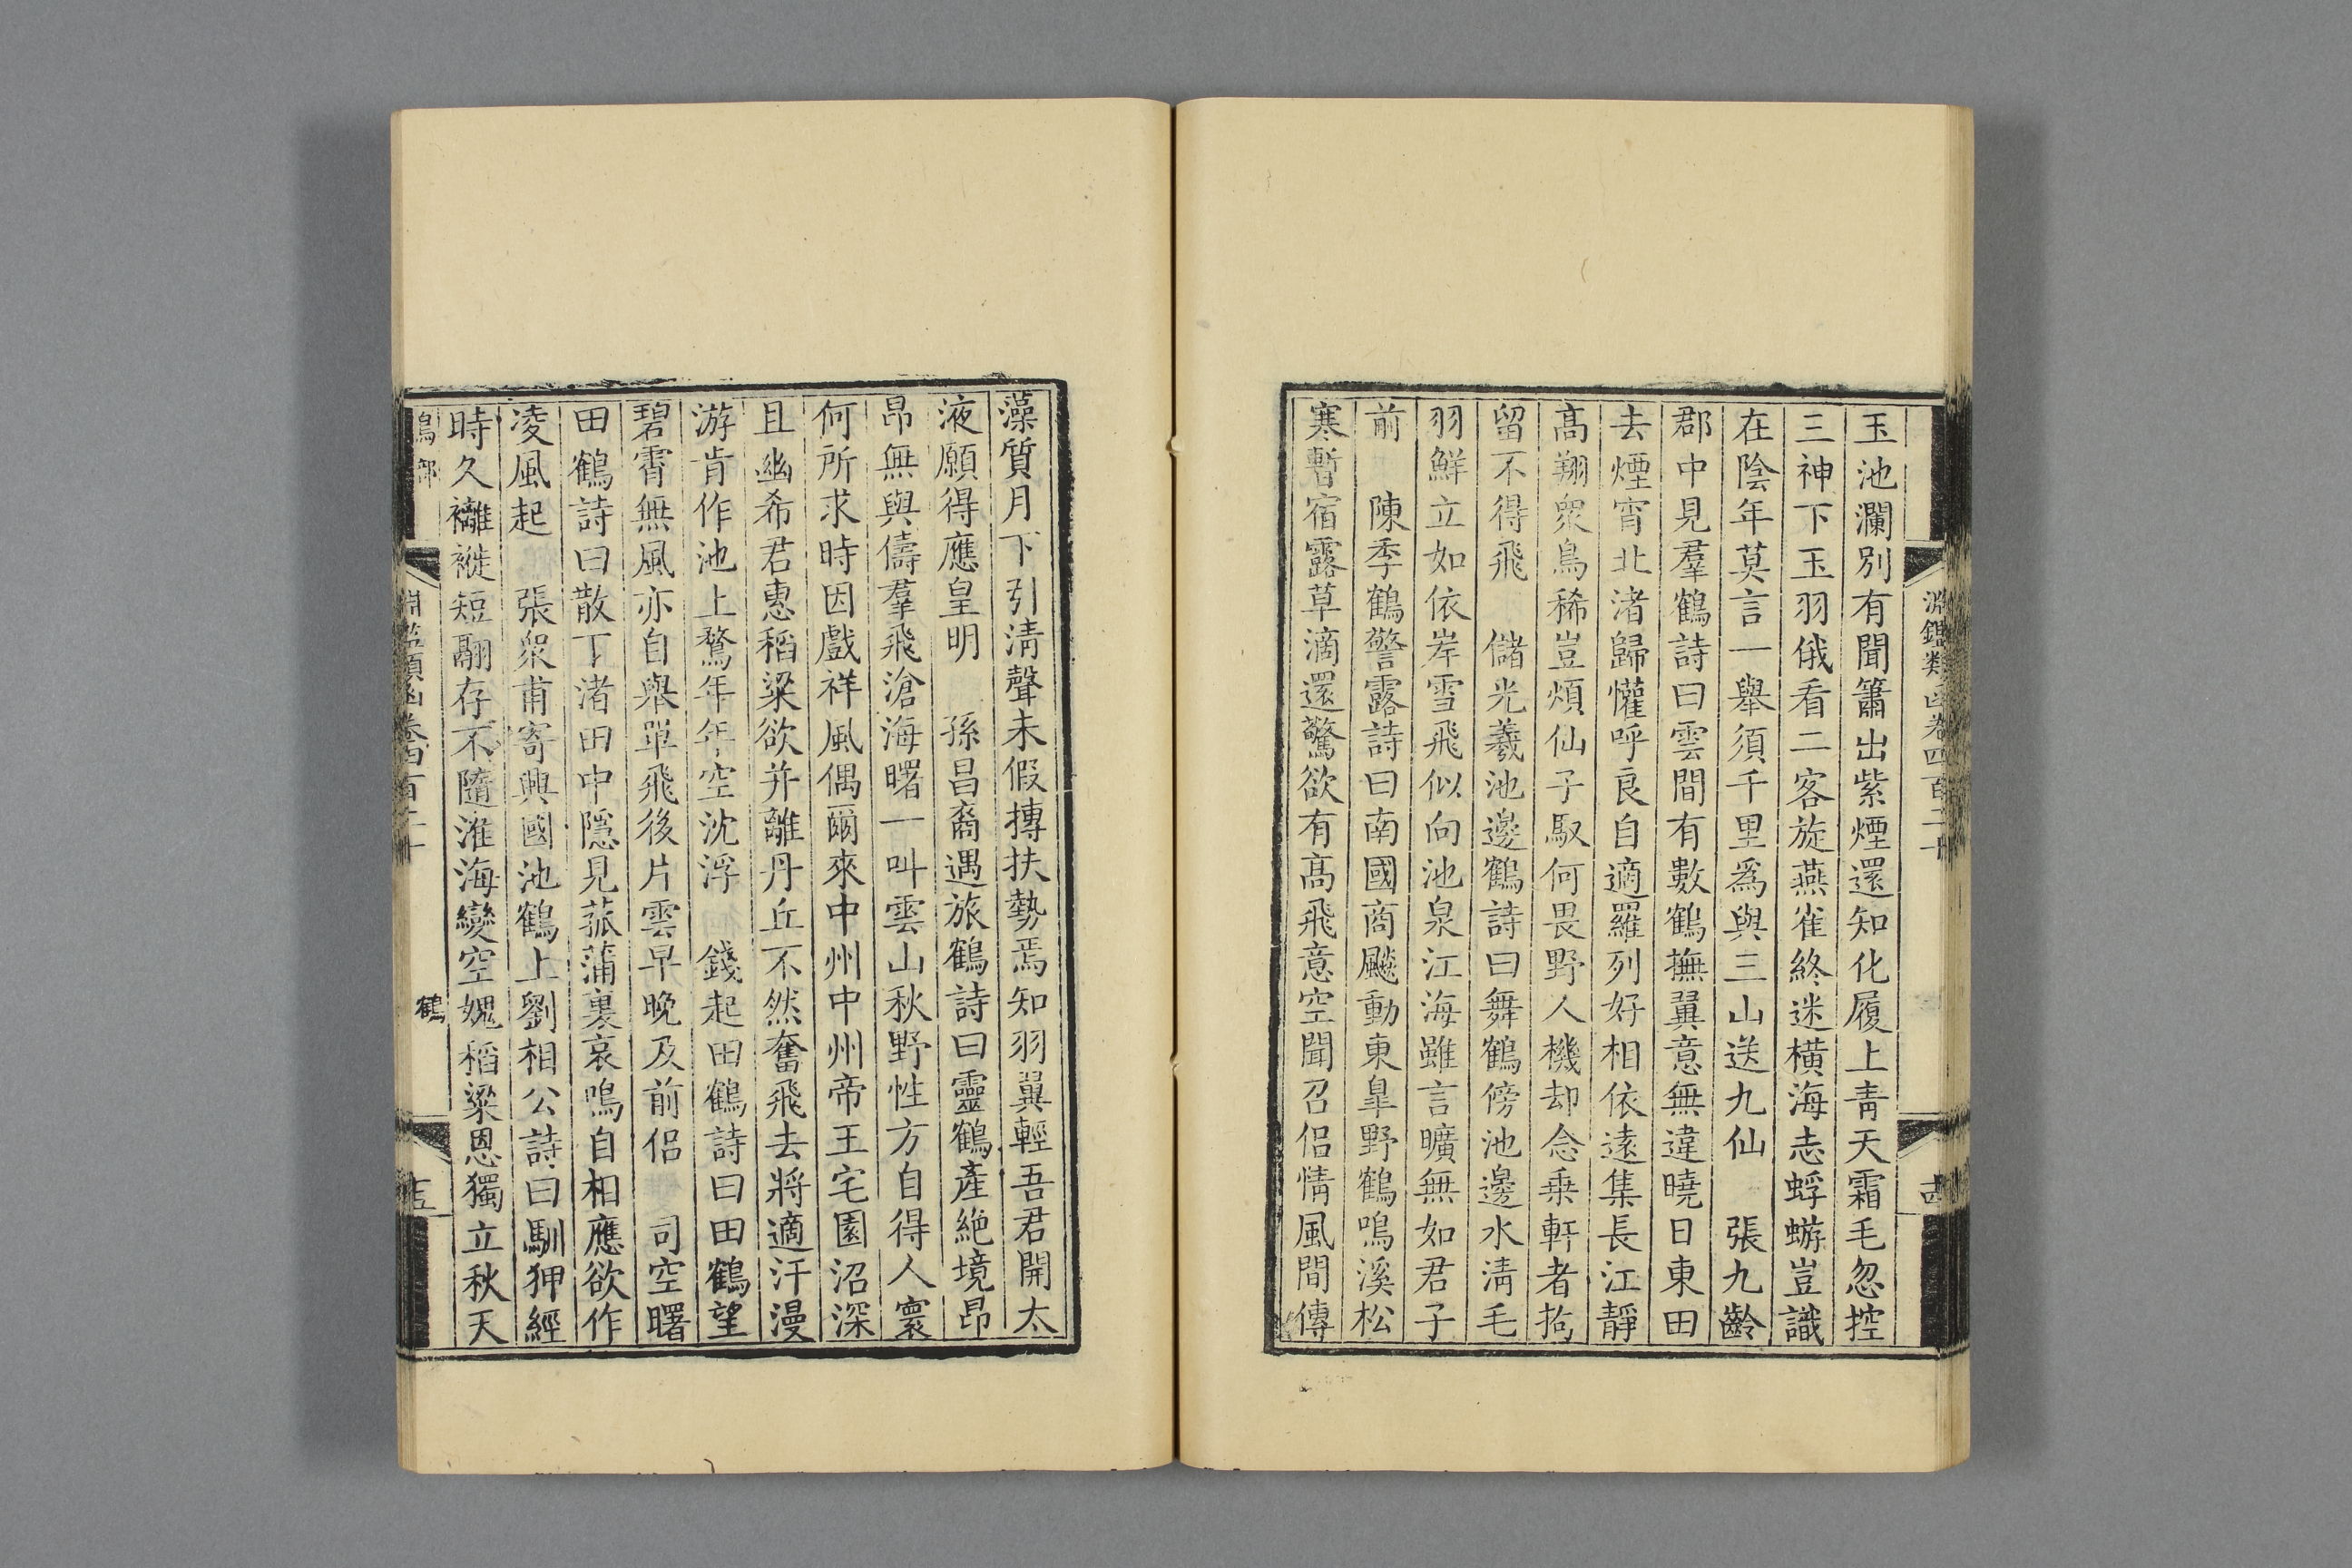 淵鑑類函卷四百二十
玉池瀾別有聞簫出紫煙還知化履上青天霜毛忽控
三神下玉羽俄看二客旋燕雀終迷橫海志蜉蝣豈識
在陰年莫言一舉須千里爲與三山送九仙 張九齡
郡中見羣鶴詩曰雲間有數鶴撫翼意無違曉日東田
去煙宵北渚歸懽呼良自適羅列好相依遠集長江靜
高翔衆鳥稀豈煩仙子馭何畏野人機却念乗軒者拘
留不得飛 儲光羲池邊鶴詩曰舞鶴傍池邊水清毛
羽鮮立如依岸雪飛似向池泉江海雖言曠無如君子
前 陳季鶴警露詩曰南國商飈動東臯野鶴鳴溪松
寒暫宿露草滴還驚欲有高飛意空聞召侶情風間傳
藻質月下引清聲未假摶扶勢焉知羽翼輕吾君開太
液願得應皇明 孫昌裔遇旅鶴詩曰靈鶴產絶境昂
昂無與儔羣飛滄海曙一叫雲山秋野性方自得人寰
何所求時因戲祥風偶爾來中州中州帝王宅園沼深
且幽希君惠稻粱欲并離丹丘不然奮飛去將適汗漫
游肯作池上鶩年年空沈浮 錢起田鶴詩曰田鶴望
碧霄無風亦自舉單飛後片雲早晚及前侶 司空曙
田鶴詩曰散下渚田中隱見菰蒲裏哀鳴自相應欲作
凌風起 張衆甫寄興國池鶴上劉相公詩曰馴狎經
時久襰褷短翮存不隨淮海變空媿稻粱恩獨立秋天
鳥部 淵鑑類函卷四百二十 鶴